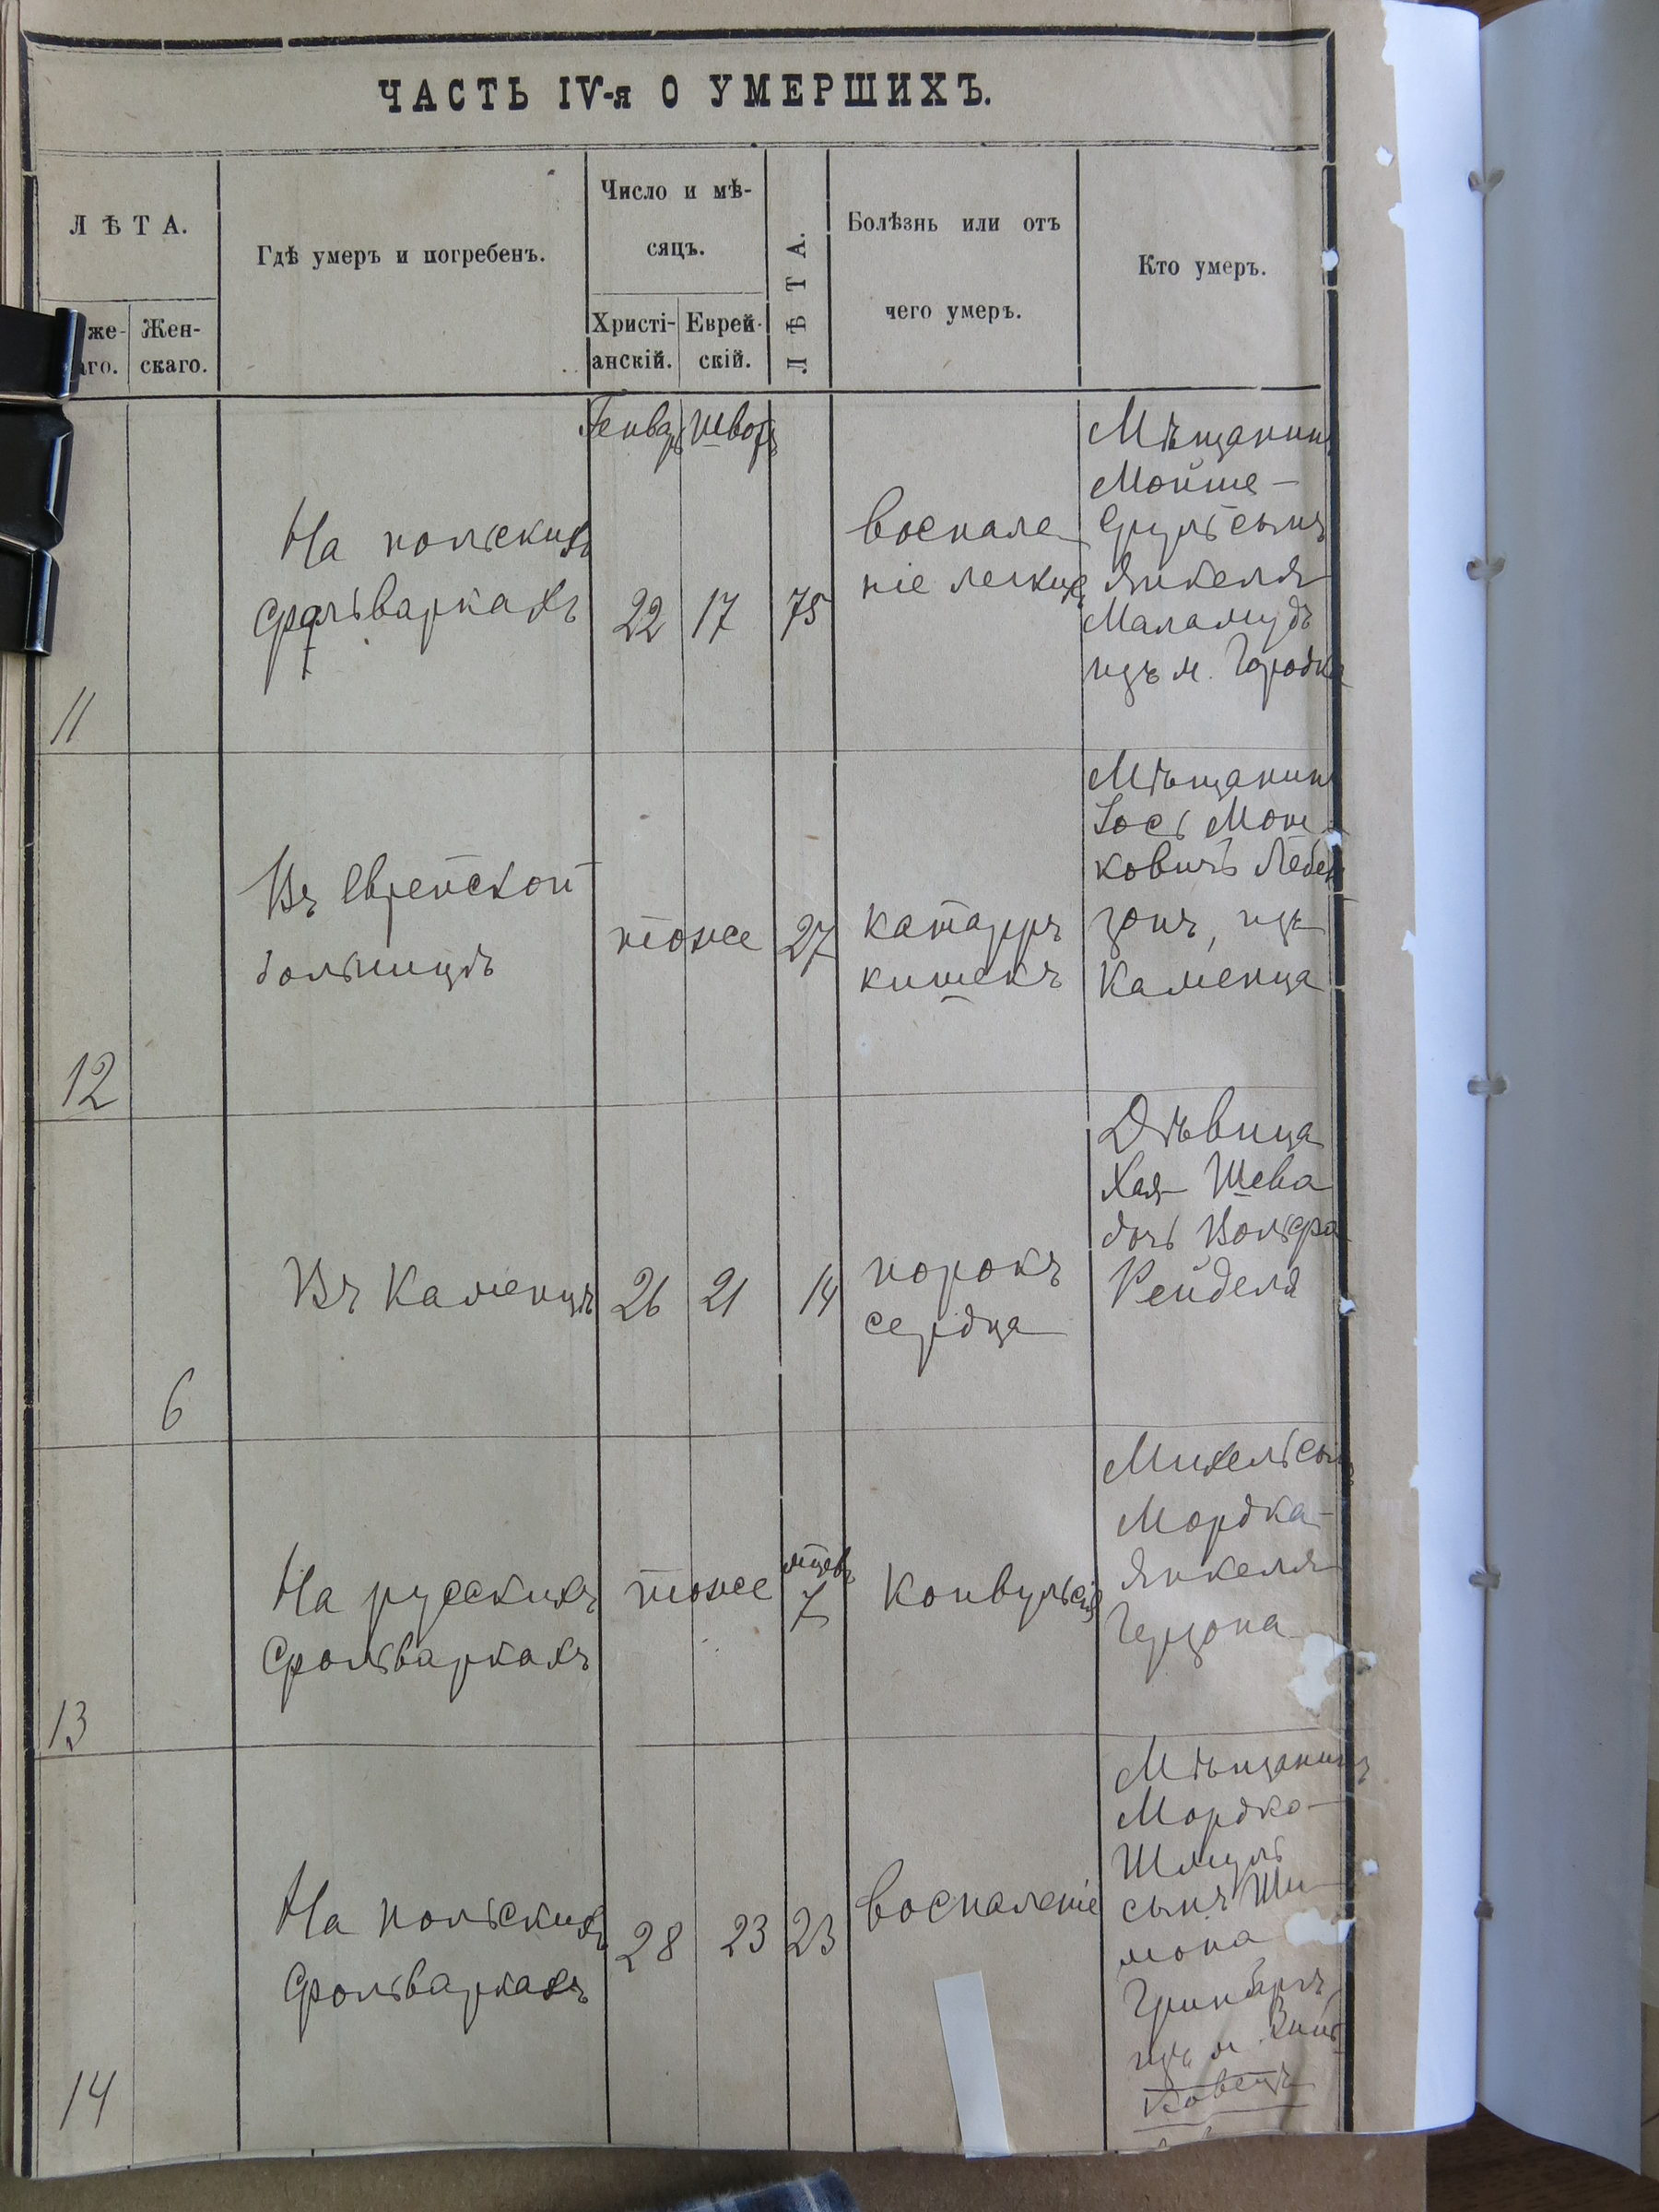 ЧАСТЬ IV-я О УМЕРШИХЪ.
ЛѢТА.
же-
аго.
Жен-
скаго.
Гдѣ умеръ и погребенъ.
Число и мѣ-
сяцъ.
Христі-
анскій.
Еврей-
скій.
ЛѢТА.
Болѣзнь или отъ
чего умеръ.
Кто умеръ.
Генварь Шватъ
11
На польскихъ
фольваркахъ
22 17 75
воспале
ніе легких
Мѣщанинъ
Мойше-
Сруль сынъ
Янкеля
Маламудъ
изъ м. Городка
12
Въ Еврейской
больницѣ
тоже 27
катарръ
кишекъ
Мѣщанинъ
Іось Мош
ковичъ Лебен
зонъ, изъ
Каменца
6
Въ Каменцѣ
26 21 14
порокъ
сердца
Дѣвица
Хая-Шева
дочь Вольфа
Рейделя
13
На русскихъ
фольваркахъ
тоже
мцевъ
7
Конвульсія
Михель сынъ
Мордка-
Янкеля
Герцона
14
На польскихъ
фольваркахъ
28 23 23
воспаленіе
Мѣщанинъ
Мордко-
Шмуль
сынъ Ши-
мона
Гринбергъ
изъ м.